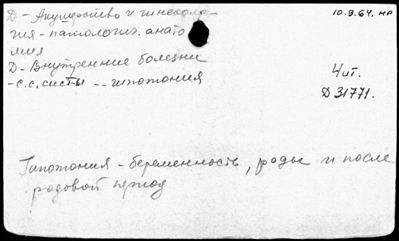 Д - Акушерство и гинеколо-
гия - патологич. анато
мия
Д - Внутренние болезни
- с.с. систы -- гипотония
10.9.64. нр
4 ит.
Д 31771.
Гипотония - беременность, роды и после
родовой период